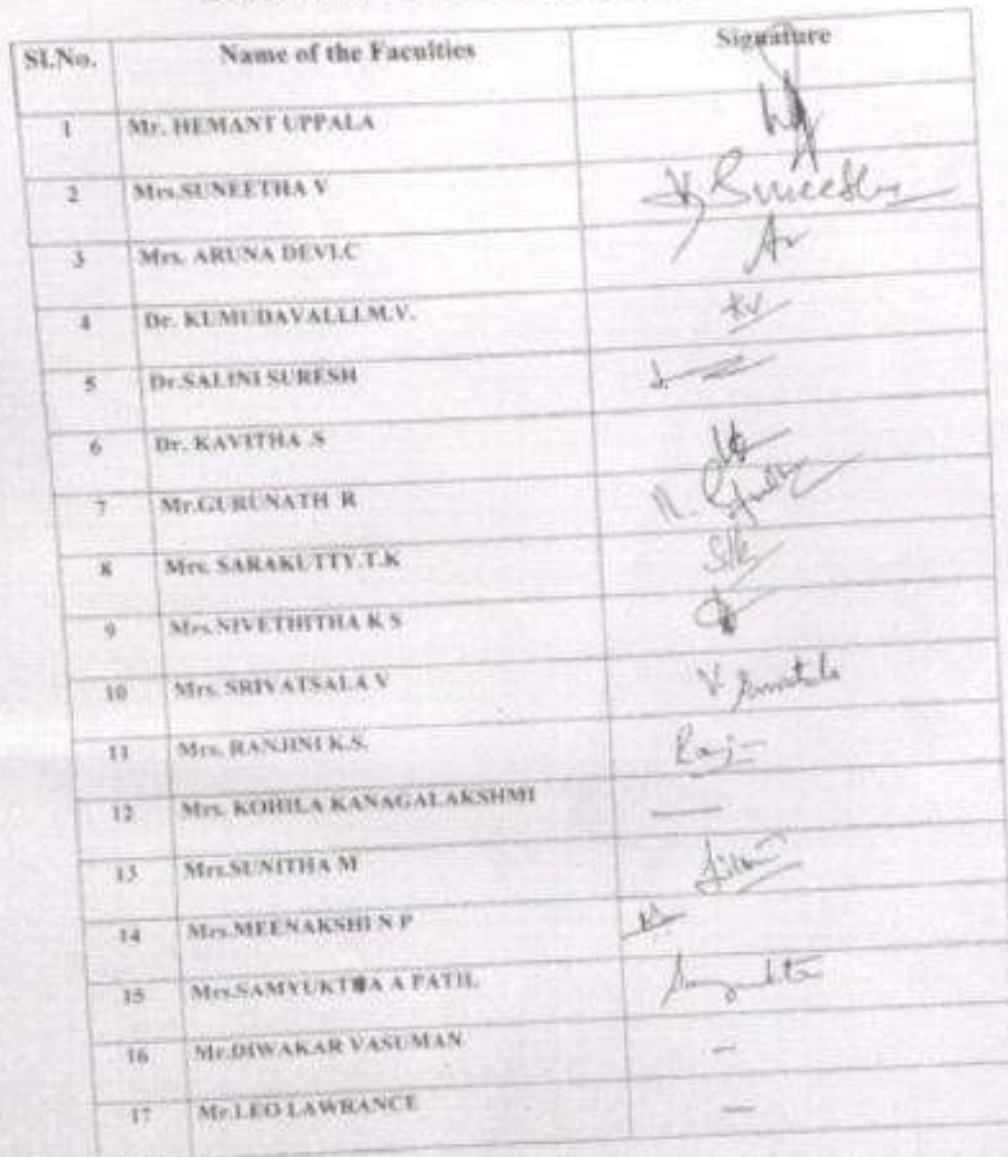 Sl.No. Name of the Faculties Signature
1 Mr. HEMANT UPPALA
2 Mrs.SUNEETHA V V Suneetha
3 Mrs. ARUNA DEVI.C Ar
4 Dr. KUMUDAVALLI.M.V. KV
5 Dr.SALINI SURESH
6 Dr. KAVITHA .S
7 Mr.GURUNATH R
8 Mrs. SARAKUTTY.T.K Slk
9 Mrs.NIVETHITHA K S
10 Mrs. SRIVATSALA V
11 Mrs. RANJINI K.S. Ranj
12 Mrs. KOHILA KANAGALAKSHMI —
13 Mrs.SUNITHA M
14 Mrs.MEENAKSHI N P
15 Mrs.SAMYUKTHA A PATIL
16 Mr.DIWAKAR VASUMAN —
17 Mr.LEO LAWRANCE —